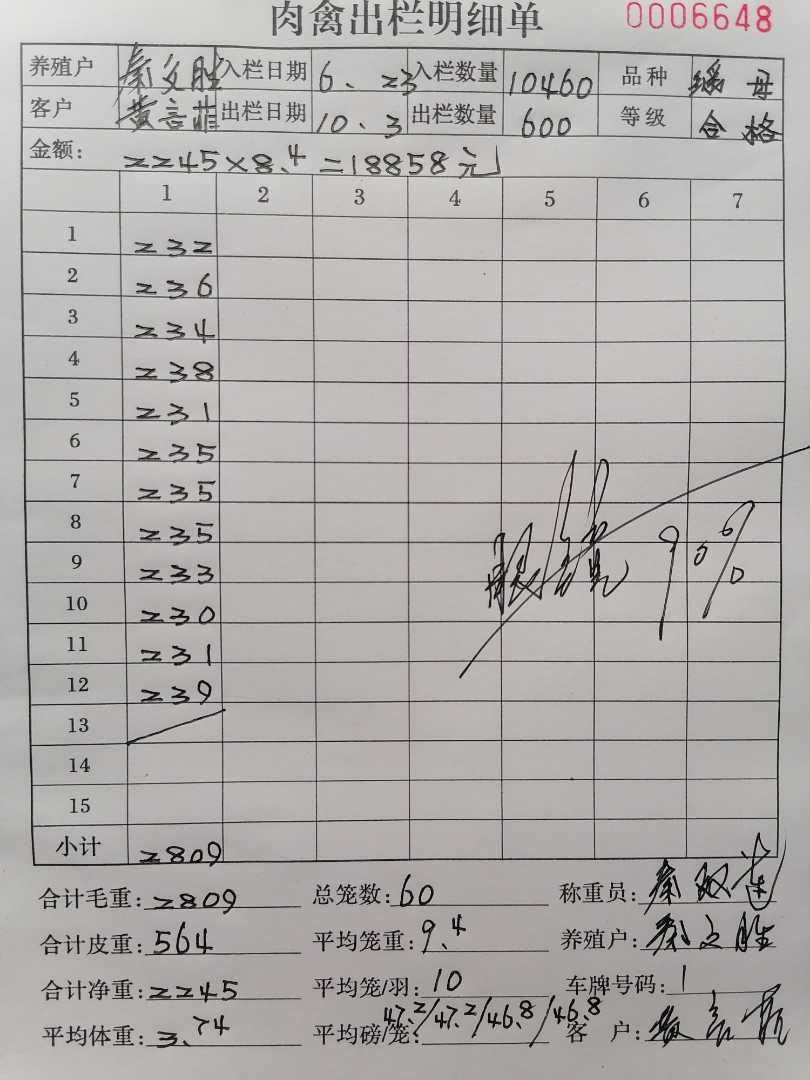 肉禽出栏明细单 0006648
养殖户 秦文胜 入栏日期 6.23 入栏数量 10460 品种 瑶母
客户 黄言菲 出栏日期 10.3 出栏数量 600 等级 合格
金额: 2245×8.4=18858元
1 2 3 4 5 6 7
1 232
2 236
3 234
4 238
5 231
6 235
7 235
8 235
9 233
10 230
11 231
12 239
13
14
15
小计 2809
合计毛重: 2809 总笼数: 60 称重员: 秦双莲
合计皮重: 564 平均笼重: 9.4 养殖户: 秦文胜
合计净重: 2245 平均笼/羽: 10 车牌号码: 1
平均体重: 3.74 平均磅/笼: 47.2/47.2/46.8/46.8 客 户: